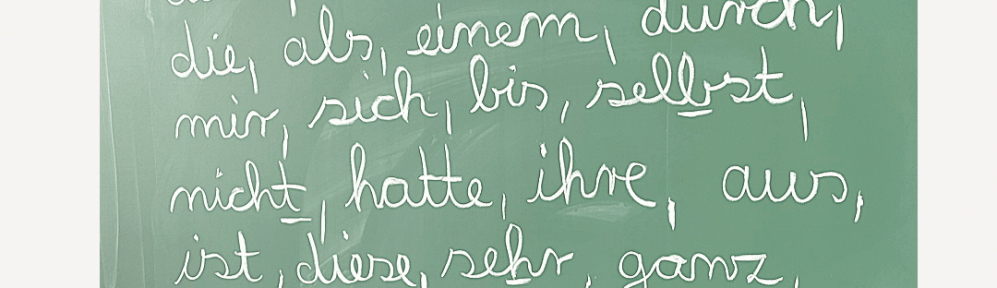 die, als, einem, durch,
mir, sich, bis, selbst,
nicht, hatte, ihre, aus,
ist, diese, sehr, ganz,